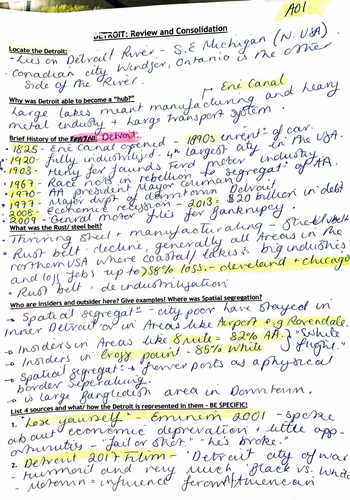 AO1
DETROIT: Review and Consolidation
Locate the Detroit:
- Lies on Detroit River - S.E Michigan (N. USA).
- Canadian city Windsor, Ontario is the other
side of the River.
Erie Canal
Why was Detroit able to become a "hub?"
Large lakes meant manufacturing and heavy
metal industry + Large transport system.
Brief History of the Detroit
• 1825 - Erie Canal opened - 1890s invent of car.
• 1920 - fully industrilised - 4th largest city in the USA.
• 1903 - Henry for founds Ford motor industry
• 1967 - Race riots in rebellion to segregat of AA.
• 1970 - AA president Mayor Coleman
• 1977 - Major dvpt of downtown Detroit
• 2008 - Economic recession - 2013 = $20 billion in debt
• 2009 - General motor files for bankrupcy.
What was the Rust/ steel belt?
- Thriving steel + manufacturaling - Steel belt
• Rust belt - decline, generally all Areas in the
northern USA where coastal / lakes big industries
and loss jobs up to 58% loss. - cleveland + chicago
• Rust belt - de industrilisation
Who are insiders and outsider here? Give examples! Where was Spatial segregation?
→ Spatial segregat - city poor have stayed in
Inner Detroit or in Areas like Airport e.g Ravendale.
→ Insiders in Areas like 8 mile = 82% AA. "white
→ Insiders in Cross point - 85% White flight."
→ Spatial segregat → former ports as a physical
border seperating.
→ is large Bangledish area in Downtown.
List 4 sources and what/ how the Detroit is represented in them - BE SPECIFIC!
1. "Lose yourself" - Eminem 2001 - spoke
about economic deprevation + little opp-
ortunities - "fail or shot" "he's broke."
2. Detroit 2017 Film - 'Detroit city of war
- turmoil and very much 'Black vs. White
- Motown = influence from